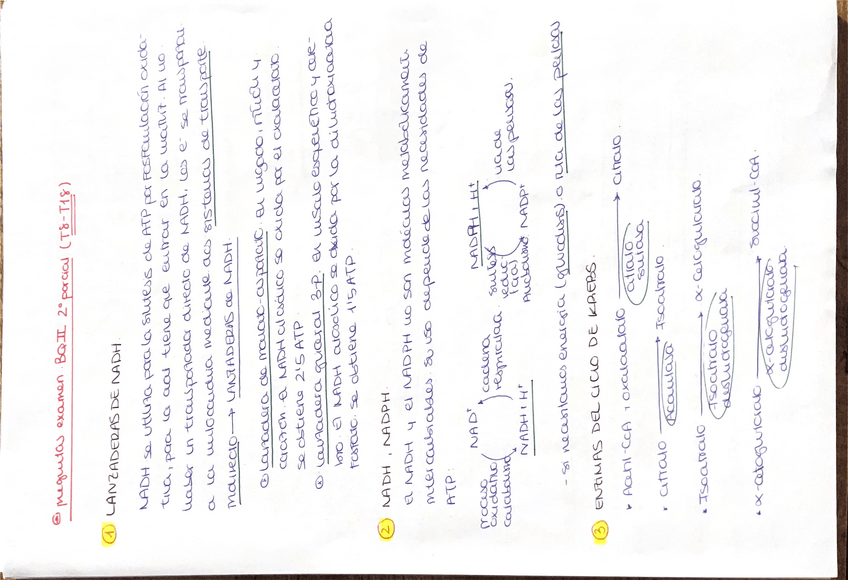 ⊛ preguntas examen. BQ II 2º parcial (T8-T18)
1 LANZADERAS DE NADH.
NADH se utiliza para la síntesis de ATP por fosforilación oxida-
tiva, para la cual tiene que entrar en la matriz. Al no
haber un transportador directo de NADH, los e⁻ se transportan
a la mitocondria mediante dos sistemas de transporte
indirecto → LANZADERAS de NADH.
⊛ lanzadera de malato-aspartato. En hígado, riñón y
corazón. El NADH citosólico se oxida por el oxalacetato.
se obtiene 2'5 ATP.
⊛ lanzadera glicerol 3-P. En músculo esquelético y cere-
bro. El NADH citosólico se oxida por la dihidroxiacetona
fosfato. se obtiene 1'5 ATP.
2 NADH, NADPH.
El NADH y el NADPH no son moléculas metabólicament.
intercambiables. su uso depende de las necesidades de
ATP:
proceso oxidativo catabolismo
NAD⁺
NADH + H⁺
cadena respiratoria.
síntesis reduct (aas) Anabolismo
NADPH + H⁺
NADP⁺
vía de las pentosas.
- si necesitamos energía (glucólisis) o ruta de las pentosas
3 ENZIMAS DEL CICLO DE KREBS.
• Acetil-CoA + oxalacetato → citrato.
citrato sintasa
• citrato → Isocitrato.
Aconitasa
• Isocitrato → α-cetoglutarato.
Isocitrato deshidrogenasa
• α-cetoglutarato → succinil-CoA.
α-cetoglutarato deshidrogenasa